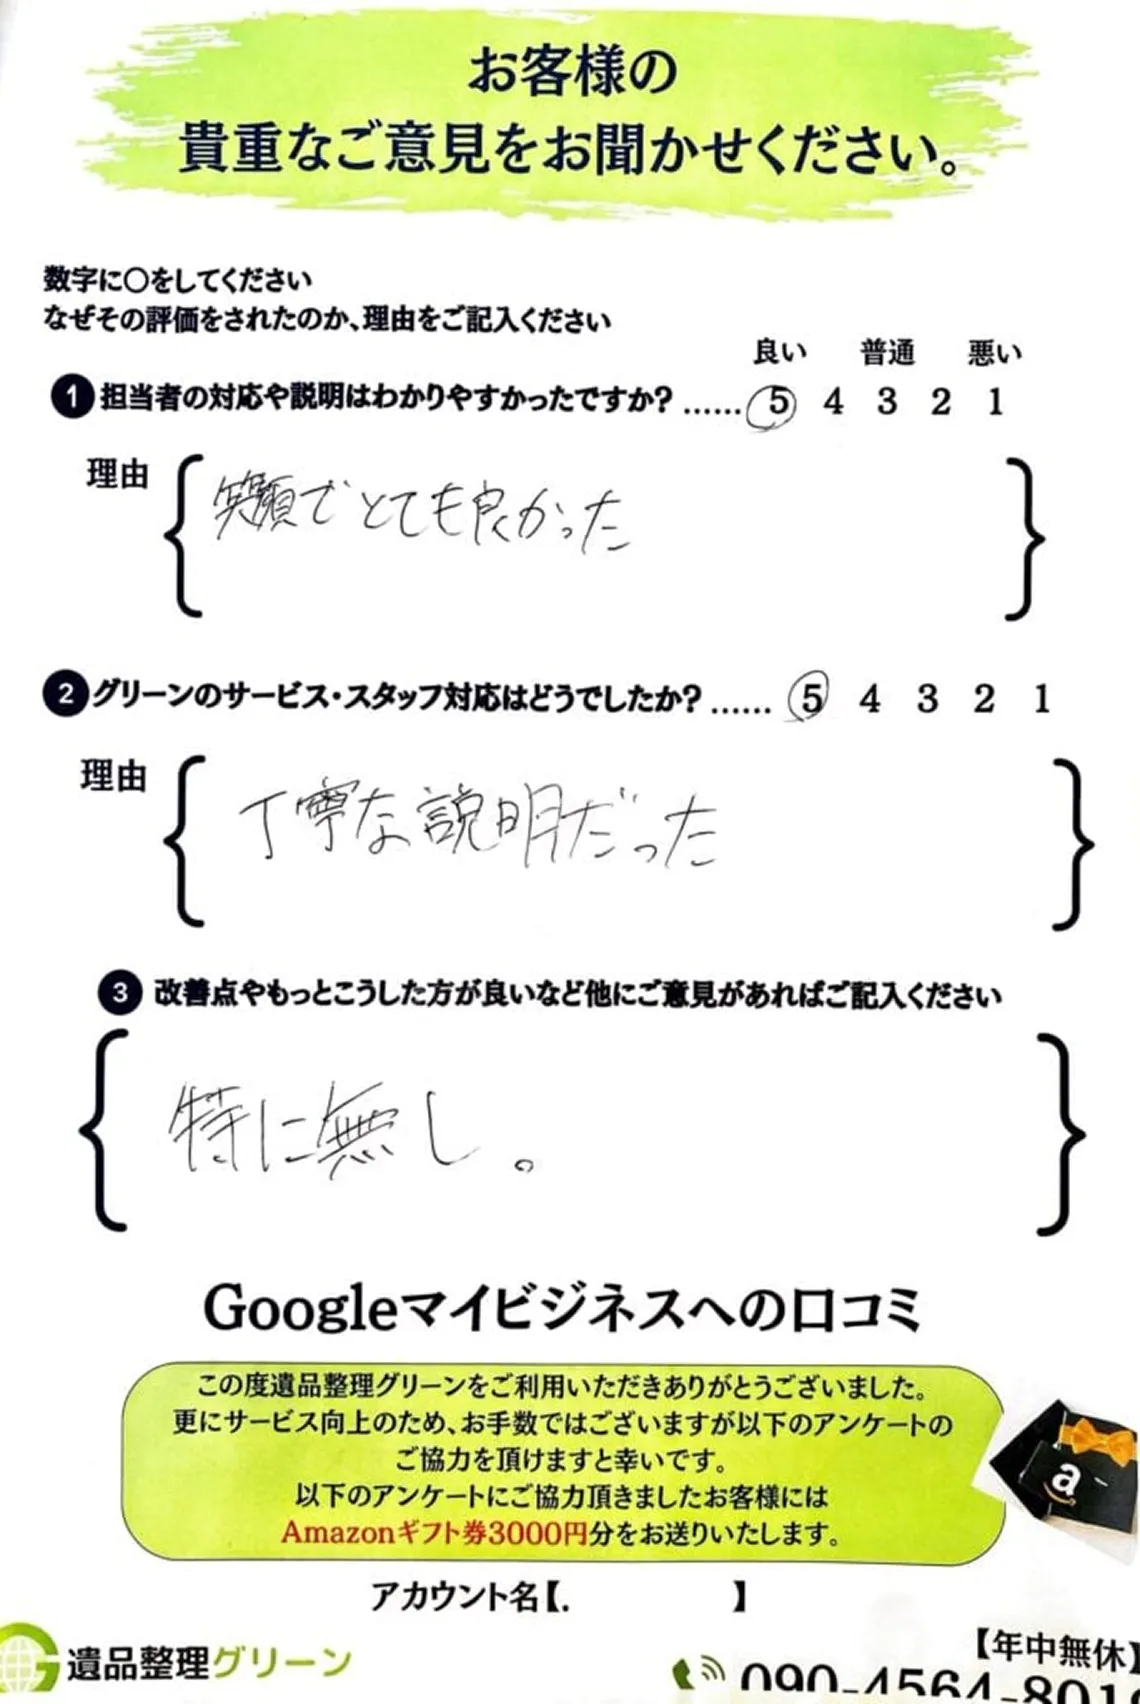 お客様の
貴重なご意見をお聞かせください。
数字に○をしてください
なぜその評価をされたのか、理由をご記入ください
良い 普通 悪い
1 担当者の対応や説明はわかりやすかったですか? …… 5 4 3 2 1
理由
笑顔でとても良かった
2 グリーンのサービス・スタッフ対応はどうでしたか? …… 5 4 3 2 1
理由
丁寧な説明だった
3 改善点やもっとこうした方が良いなど他にご意見があればご記入ください
特に無し。
Googleマイビジネスへの口コミ
この度遺品整理グリーンをご利用いただきありがとうございました。
更にサービス向上のため、お手数ではございますが以下のアンケートの
ご協力を頂けますと幸いです。
以下のアンケートにご協力頂きましたお客様には
Amazonギフト券3000円分をお送りいたします。
a
アカウント名【. 】
【年中無休】
遺品整理グリーン
090-4564-801